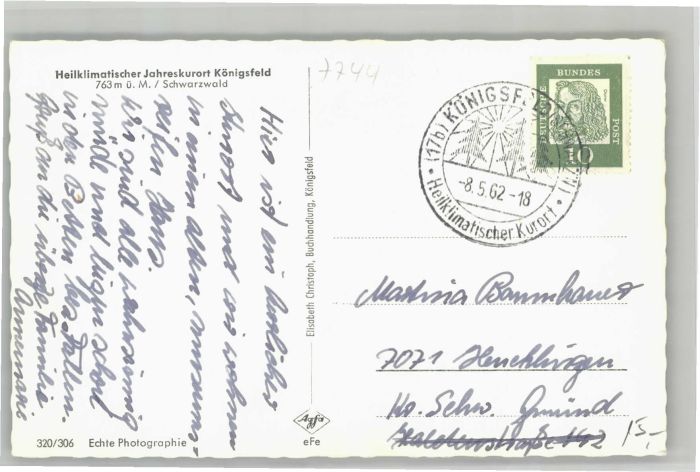 Heilklimatischer Jahreskurort Königsfeld
763 m ü. M. / Schwarzwald
7744
Hier ist ein herrlicher
Ort und wir wohnen
in einem alten,
alten Haus.
Wir sind alle
müde und liegen schon
in den Betten.
Gruß an die übrige Familie
Annemarie
320/306 Echte Photographie
Elisabeth Christoph, Buchhandlung, Königsfeld
Agfa
eFe
DEUTSCHE BUNDESPOST
Dürer
10
(17b) KÖNIGSFELD
-8.5.62-18
Heilklimatischer Kurort
Martina Baumhauer
7071 Heuchlingen
Kr. Schw. Gmünd
15,-